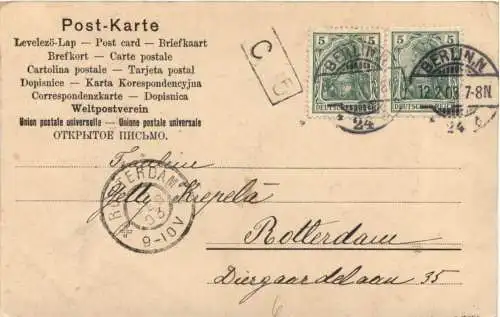 Post-Karte
Levelező-Lap — Post card — Briefkaart
Brefkort — Carte postale
Cartolina postale — Tarjeta postal
Dopisnice — Karta Korespondencyjna
Correspondenzkarte — Dopisnica
Weltpostverein
Union postale universelle — Unione postale universale
ОТКРЫТОЕ ПИСЬМО.
C 5
5 5
5 5
DEUTSCHES REICH
BERLIN.N.
24
BERLIN.N.
12.2.03 7-8N.
24
Fräulein
Jetty Krepela
Rotterdam
Diergaardelaan 35
ROTTERDAM
03
9-10V